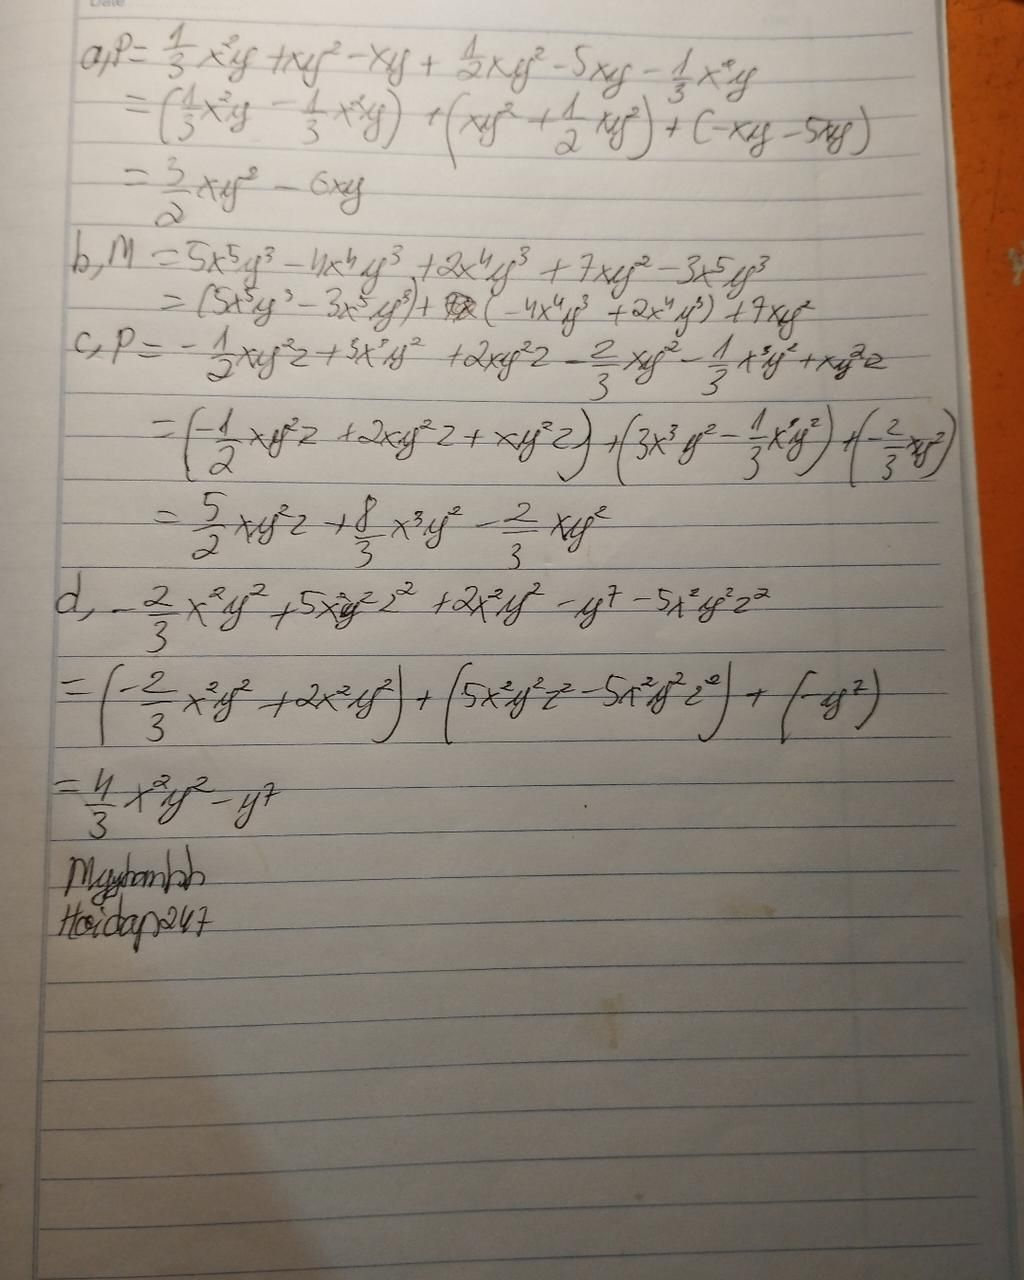 Date
a, P = 1/3 x²y + xy² - xy + 1/2 xy² - 5xy - 1/3 x²y
= (1/3 x²y - 1/3 x²y) + (xy² + 1/2 xy²) + (-xy - 5xy)
= 3/2 xy² - 6xy
b, M = 5x⁵y³ - 4x⁴y³ + 2x⁴y³ + 7xy² - 3x⁵y³
= (5x⁵y³ - 3x⁵y³) + (-4x⁴y³ + 2x⁴y³) + 7xy²
c, P = -1/2 xy²z + 3x³y² + 2xy²z - 2/3 xy² - 1/3 x³y² + xy²z
= (-1/2 xy²z + 2xy²z + xy²z) + (3x³y² - 1/3 x³y²) + (-2/3 xy²)
= 5/2 xy²z + 8/3 x³y² - 2/3 xy²
d, -2/3 x²y² + 5x²y²z² + 2x²y² - y⁷ - 5x²y²z²
= (-2/3 x²y² + 2x²y²) + (5x²y²z² - 5x²y²z²) + (-y⁷)
= 4/3 x²y² - y⁷
Hoidap247